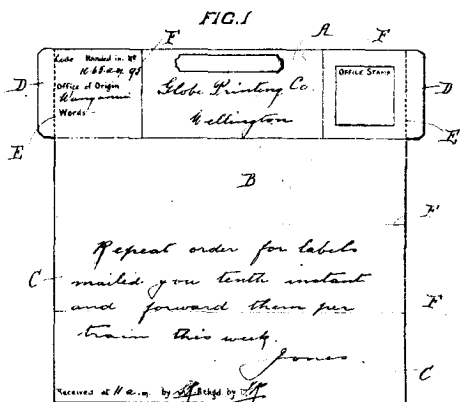 FIG. 1
A
F
F
Code Handed in. at
Office of Origin
Wanganui
Words
Globe Printing Co.
Wellington
OFFICE STAMP
D
D
E
E
B
F
Repeat order for labels
mailed you tenth instant
and forward them per
train this week.
Jones
C
F
C
Received at 11 a.m. by Chkgd by